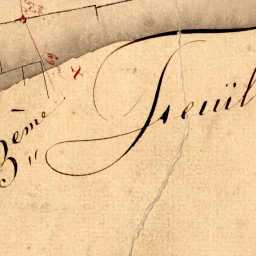 3ème Feuil